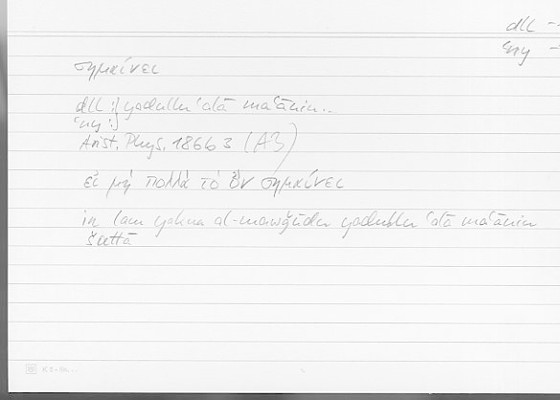 dll
ʿny
σημαίνει
dll :} yadullu ʿalā maʿānin..
ʿny :}
Arist. Phys. 186b3 (A3)
εἰ μὴ πολλὰ τὸ ὂν σημαίνει
in lam yakun al-mawǧūdu yadullu ʿalā maʿānin
šattā